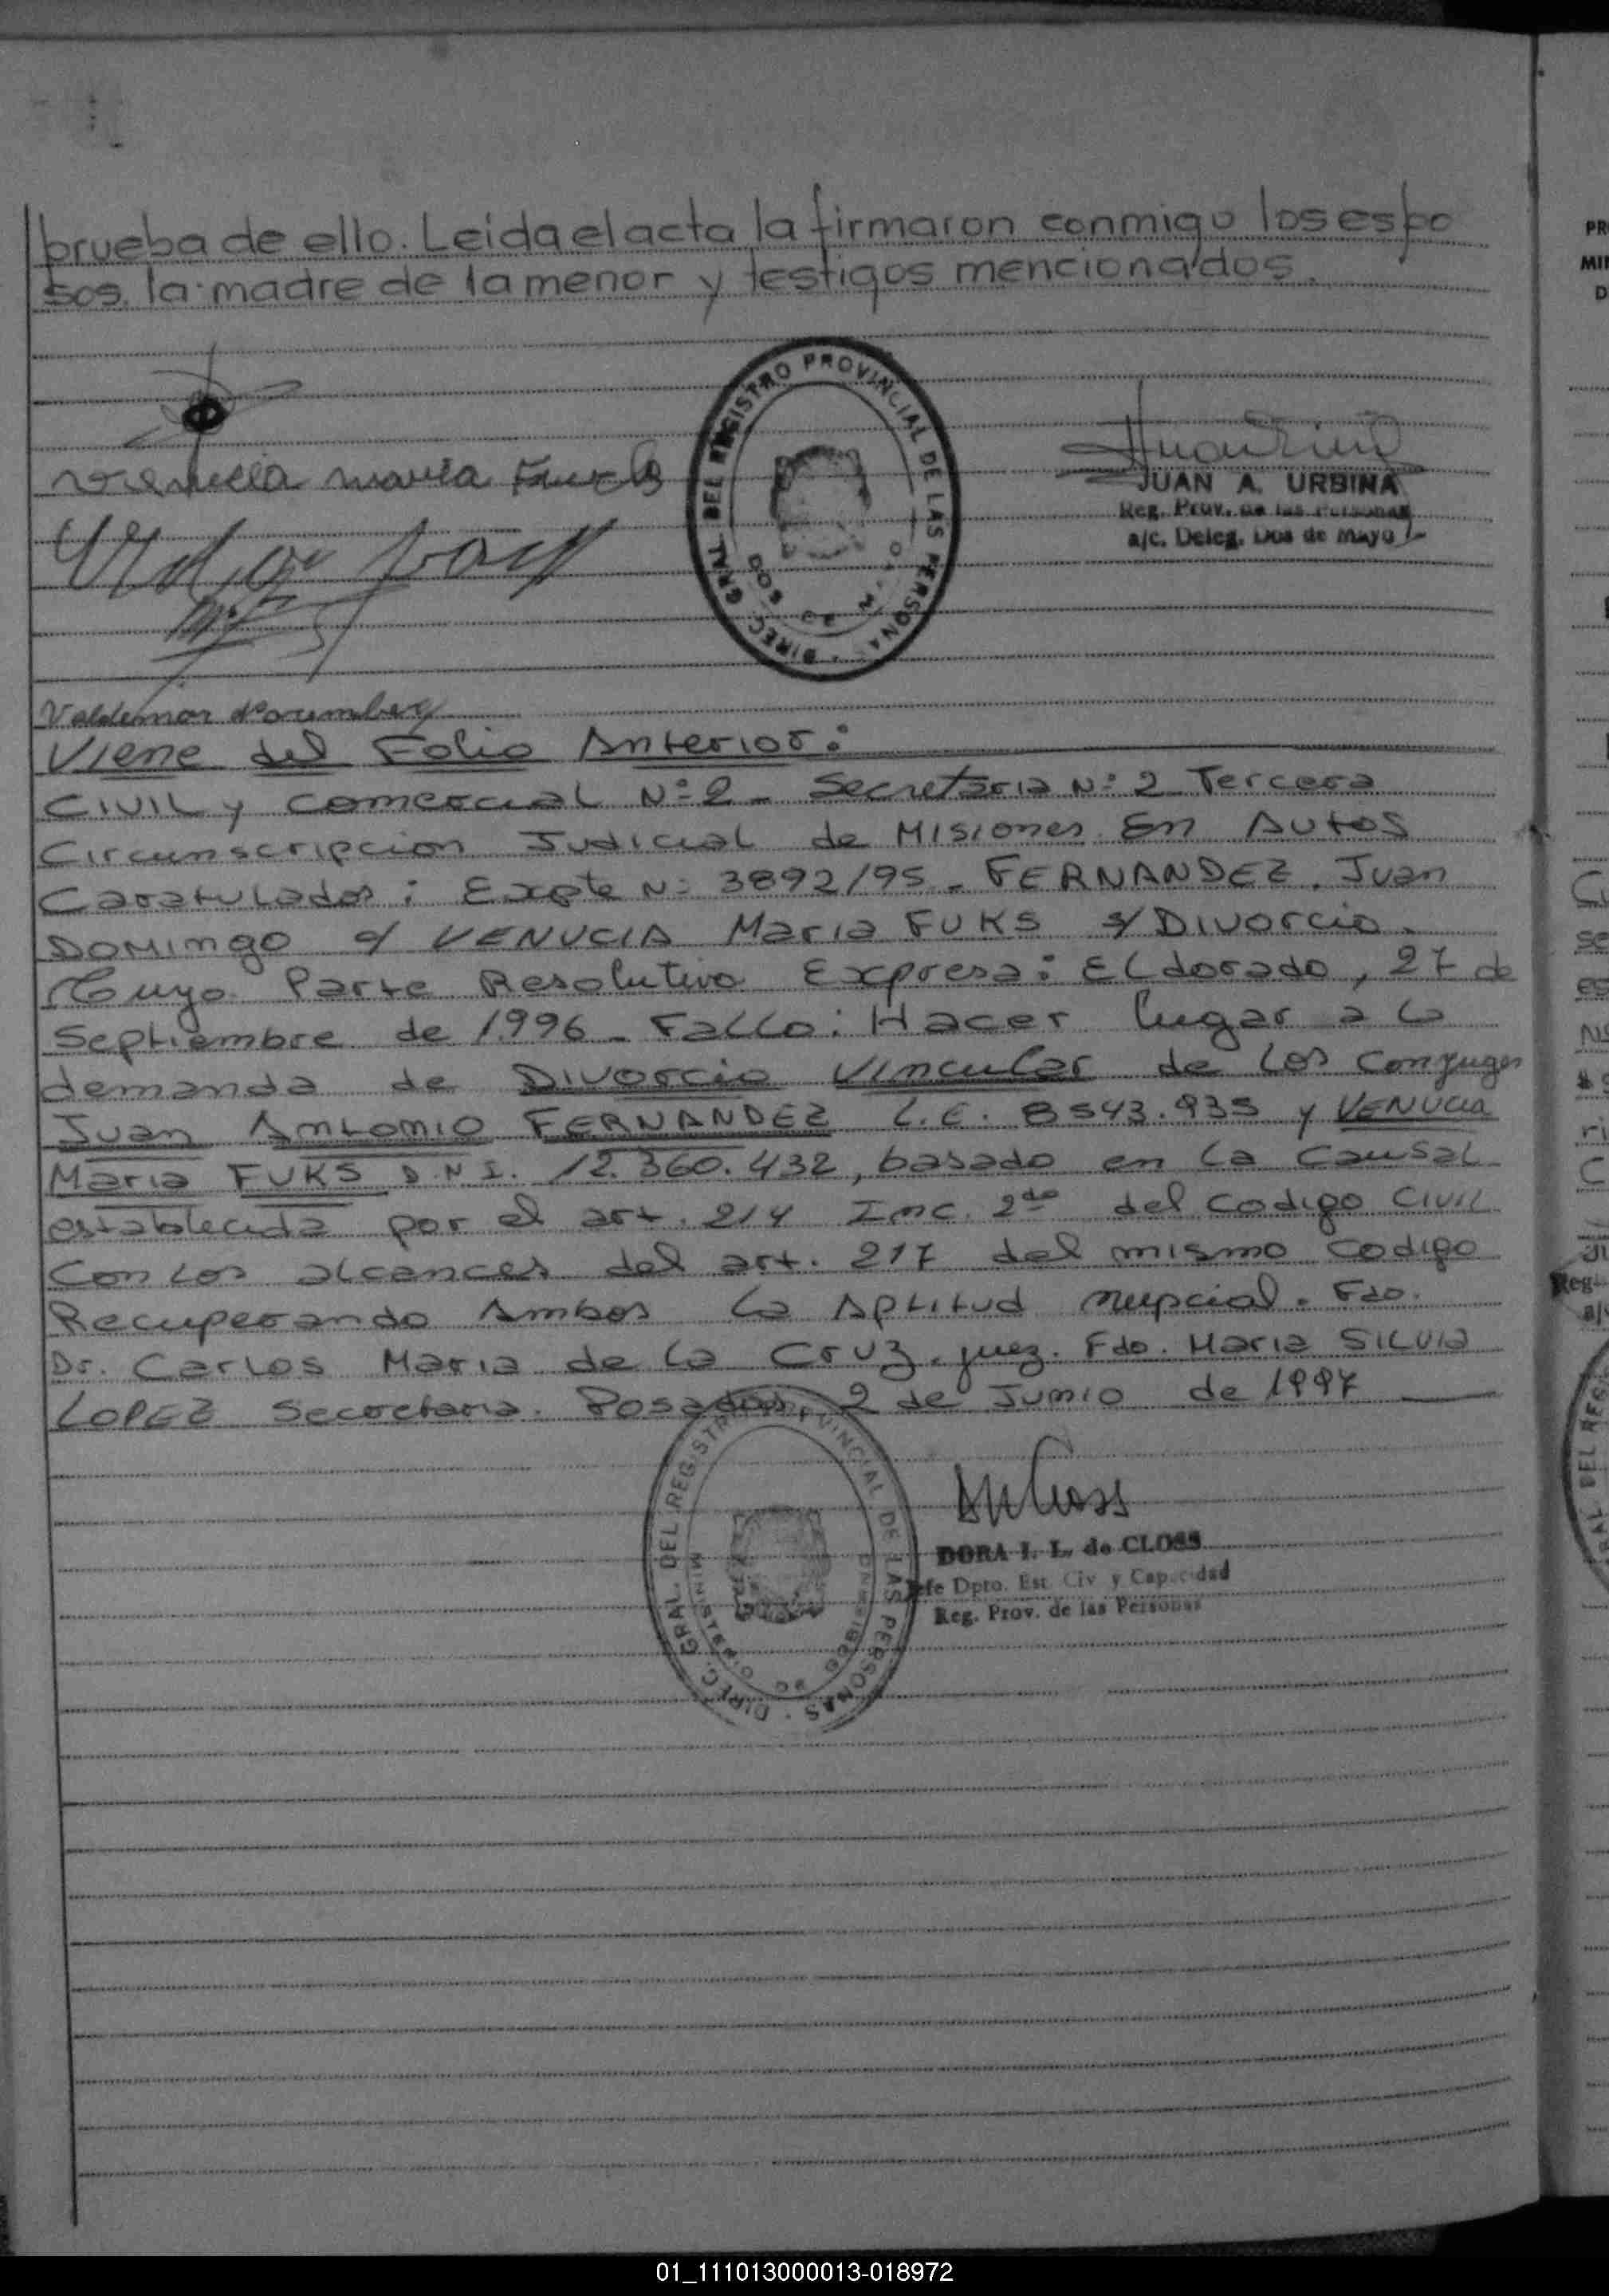 prueba de ello. Leida el acta la firmaron conmigo los espo
sos, la madre de la menor y testigos mencionados.
DIREC. GRAL. DEL REGISTRO PROVINCIAL DE LAS PERSONAS
JUAN A. URBINA
Reg. Prov. de las Personas
a/c. Deleg. Dos de Mayo
Viene del Folio Anterior:
Civil y Comercial Nº 2 - Secretaria Nº 2 Tercera
Circunscripcion Judicial de Misiones En Autos
Caratulados: Expte Nº 3892/95 - FERNANDEZ, Juan
Domingo c/ VENUCIA Maria FUKS s/ Divorcio.
Cuyo Parte Resolutiva Expresa: Eldorado, 27 de
Septiembre de 1996 - Fallo: Hacer lugar a la
demanda de Divorcio Vincular de los Conyuges
Juan Antonio FERNANDEZ L.E. 8543.935 y VENUCIA
Maria FUKS D.N.I. 12.360.432, basado en la Causal
establecida por el art. 214 Inc. 2do del Codigo Civil
Con los alcances del art. 217 del mismo Codigo
Recuperando Ambos la Aptitud nupcial. Fdo.
Dr. Carlos Maria de la Cruz. juez. Fdo. Maria Silvia
LOPEZ Secretaria. Posadas, 2 de Junio de 1997
DIREC. GRAL. DEL REGISTRO PROVINCIAL DE LAS PERSONAS
DORA I. L. de CLOSS
Jefe Dpto. Est. Civ. y Capacidad
Reg. Prov. de las Personas
01_111013000013-018972